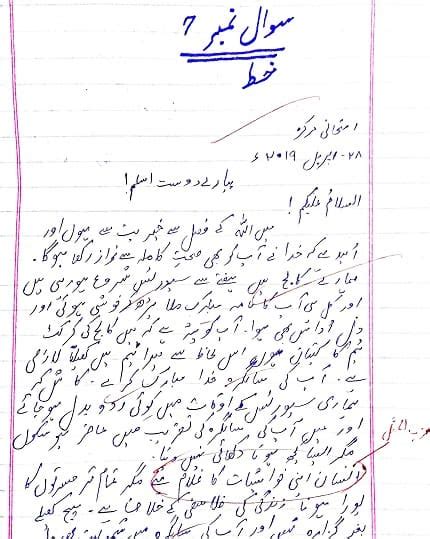 سوال نمبر 7
خط
امتحانی مرکز
۲۸-اپریل ۲۰۱۹ء
پیارے دوست اسلم!
السلام علیکم!
میں اللہ کے فضل سے خیریت سے ہوں اور
امید ہے کہ خدا نے آپ کو بھی صحتِ کاملہ سے نوازا رکھا ہوگا۔
ہمارے کالج میں ہفتے سے سپورٹس شروع ہو رہی ہیں
اور کل ہی آپ کا نامہ مبارک ملا پڑھ کر خوشی ہوئی اور
دل اداس بھی ہوا۔ آپ کو پتہ ہے کہ میں کالج کی کرکٹ
ٹیم کا کپتان ہوں اس لحاظ سے میرا ٹیم میں کھیلنا لازمی
ہے۔ آپ کی سالگرہ خدا مبارک کرے۔ کاش کہ
ہماری سپورٹس کے اوقات میں کوئی ردوبدل ہو جائے
اور میں آپ کی سالگرہ کی تقریب میں حاضر ہو سکوں
مگر ایسا کچھ ہوتا دکھائی نہیں دیتا۔
انسان اپنی خواہشات کا غلام ہے مگر تمام تر مسرتوں کا
پورا ہونا زندگی کی فلاسفی کے خلاف ہے۔ میچ کھیلے
بغیر گزارہ نہیں اور آپ کی سالگرہ میں شمولیت بھی